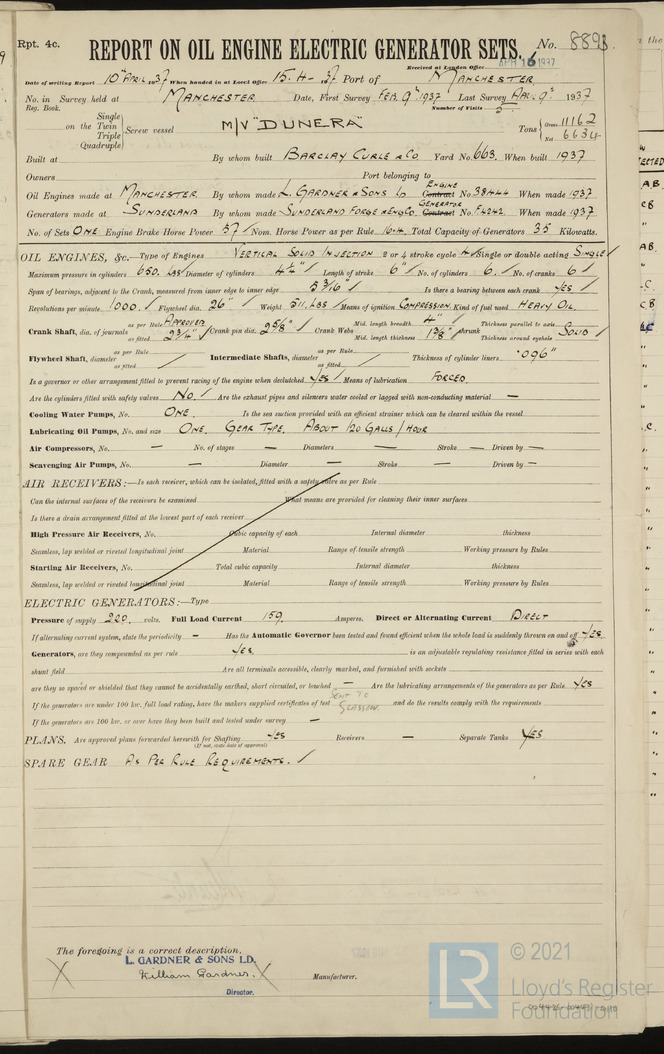 Rpt. 4c.
REPORT ON OIL ENGINE ELECTRIC GENERATOR SETS. No. 8893
Received at London Office APR 16 1937
Date of writing Report 10th APRIL 1937 When handed in at Local Office 15.4.37 Port of MANCHESTER
No. in Survey held at MANCHESTER Date, First Survey FEB. 9th 1937 Last Survey APR. 9th 1937
Reg. Book. Number of Visits 5
Single
on the Twin
Triple
Quadruple
Screw vessel M/V "DUNERA" Tons Gross 11162
Net 6634
Built at By whom built BARCLAY CURLE & CO Yard No. 663. When built 1937
Owners Port belonging to
Oil Engines made at MANCHESTER By whom made L. GARDNER & SONS LD ENGINE Contract No. 38444 When made 1937
Generators made at SUNDERLAND By whom made SUNDERLAND FORGE & ENG CO. GENERATOR Contract No. F4242. When made 1937.
No. of Sets ONE Engine Brake Horse Power 57 Nom. Horse Power as per Rule 16.4 Total Capacity of Generators 35 Kilowatts.
OIL ENGINES, &c.—Type of Engines VERTICAL SOLID INJECTION 2 or 4 stroke cycle 4 Single or double acting SINGLE
Maximum pressure in cylinders 650. LBS Diameter of cylinders 4¼" Length of stroke 6" No. of cylinders 6. No. of cranks 6
Span of bearings, adjacent to the Crank, measured from inner edge to inner edge 5 3/16" Is there a bearing between each crank YES
Revolutions per minute 1000. Flywheel dia. 26" Weight 511. LBS Means of ignition COMPRESSION. Kind of fuel used HEAVY OIL.
Crank Shaft, dia. of journals as per Rule APPROVED as fitted 2¾" Crank pin dia. 2⅝" Crank Webs Mid. length breadth 4" Mid. length thickness 1⅜" shrunk Thickness parallel to axis Thickness around eyehole SOLID
Flywheel Shaft, diameter as per Rule as fitted Intermediate Shafts, diameter as per Rule as fitted Thickness of cylinder liners ·096"
Is a governor or other arrangement fitted to prevent racing of the engine when declutched YES Means of lubrication FORCED.
Are the cylinders fitted with safety valves NO. Are the exhaust pipes and silencers water cooled or lagged with non-conducting material —
Cooling Water Pumps, No. ONE. Is the sea suction provided with an efficient strainer which can be cleared within the vessel
Lubricating Oil Pumps, No. and size ONE. GEAR TYPE. ABOUT 120 GALLS / HOUR
Air Compressors, No. — No. of stages — Diameters — Stroke — Driven by —
Scavenging Air Pumps, No. — Diameter — Stroke — Driven by —
AIR RECEIVERS:—Is each receiver, which can be isolated, fitted with a safety valve as per Rule
Can the internal surfaces of the receivers be examined What means are provided for cleaning their inner surfaces
Is there a drain arrangement fitted at the lowest part of each receiver
High Pressure Air Receivers, No. Cubic capacity of each Internal diameter thickness
Seamless, lap welded or riveted longitudinal joint Material Range of tensile strength Working pressure by Rules
Starting Air Receivers, No. Total cubic capacity Internal diameter thickness
Seamless, lap welded or riveted longitudinal joint Material Range of tensile strength Working pressure by Rules
ELECTRIC GENERATORS:—Type
Pressure of supply 220. volts. Full Load Current 159. Amperes. Direct or Alternating Current DIRECT
If alternating current system, state the periodicity — Has the Automatic Governor been tested and found efficient when the whole load is suddenly thrown on and off YES.
Generators, are they compounded as per rule YES. is an adjustable regulating resistance fitted in series with each
shunt field Are all terminals accessible, clearly marked, and furnished with sockets
are they so spaced or shielded that they cannot be accidentally earthed, short circuited, or touched — Are the lubricating arrangements of the generators as per Rule YES
If the generators are under 100 kw. full load rating, have the makers supplied certificates of test SENT TO GLASGOW. and do the results comply with the requirements
If the generators are 100 kw. or over have they been built and tested under survey —
PLANS. Are approved plans forwarded herewith for Shafting YES Receivers — Separate Tanks YES
(If not, state date of approval)
SPARE GEAR AS PER RULE REQUIREMENTS.
The foregoing is a correct description,
L. GARDNER & SONS LD.
William Gardner. Manufacturer.
Director.
LR
© 2021
Lloyd's Register
Foundation